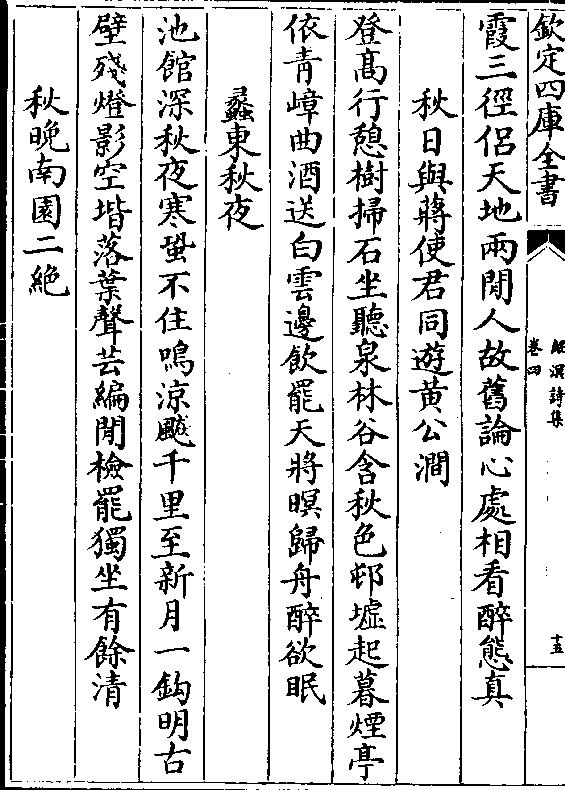 欽定四庫全書
鯤溟詩集
卷四
十五
霞三徑侶天地兩閒人故舊論心處相看醉態真
秋日與蔣使君同遊黃公澗
登高行憩樹掃石坐聽泉林谷含秋色邨墟起暮煙亭
依青嶂曲酒送白雲邊飲罷天將暝歸舟醉欲眠
蠡東秋夜
池館深秋夜寒蛩不住鳴涼飈千里至新月一鈎明古
壁殘燈影空堦落葉聲芸編閒檢罷獨坐有餘清
秋晚南園二絶